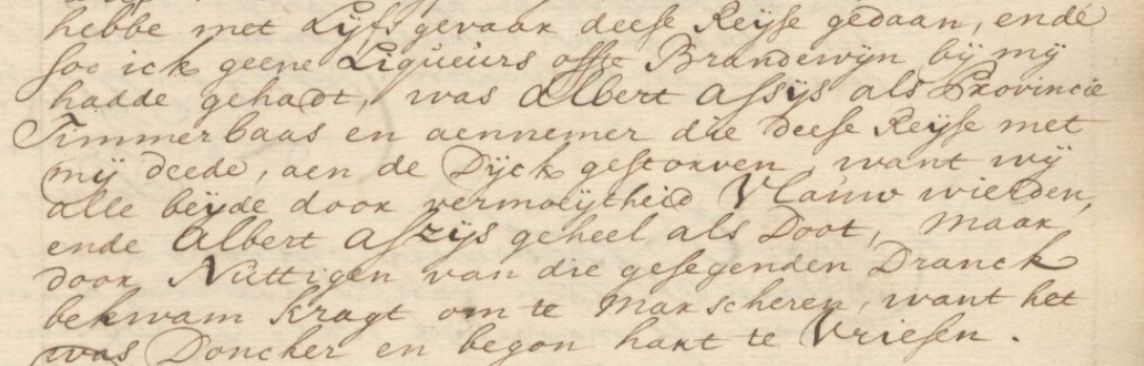 hebbe met Lyfs gevaar deese Reyse gedaan, ende
soo ick geene Liqueurs offte Brandewyn bij mij
hadde gehadt, was Albert Assijs als Provincie
Timmerbaas en aennemer die deese Reyse met
mij deede, aen de Dijck gestorven, want wij
alle beyde door vermoeytheid Vlauw wierden,
ende Albert Aszijs geheel als Doot, Maar
door Nuttigen van die gesegenden Dranck
bekwam Kragt om te Marscheren, want het
was Doncker en begon hart te Vriesen.